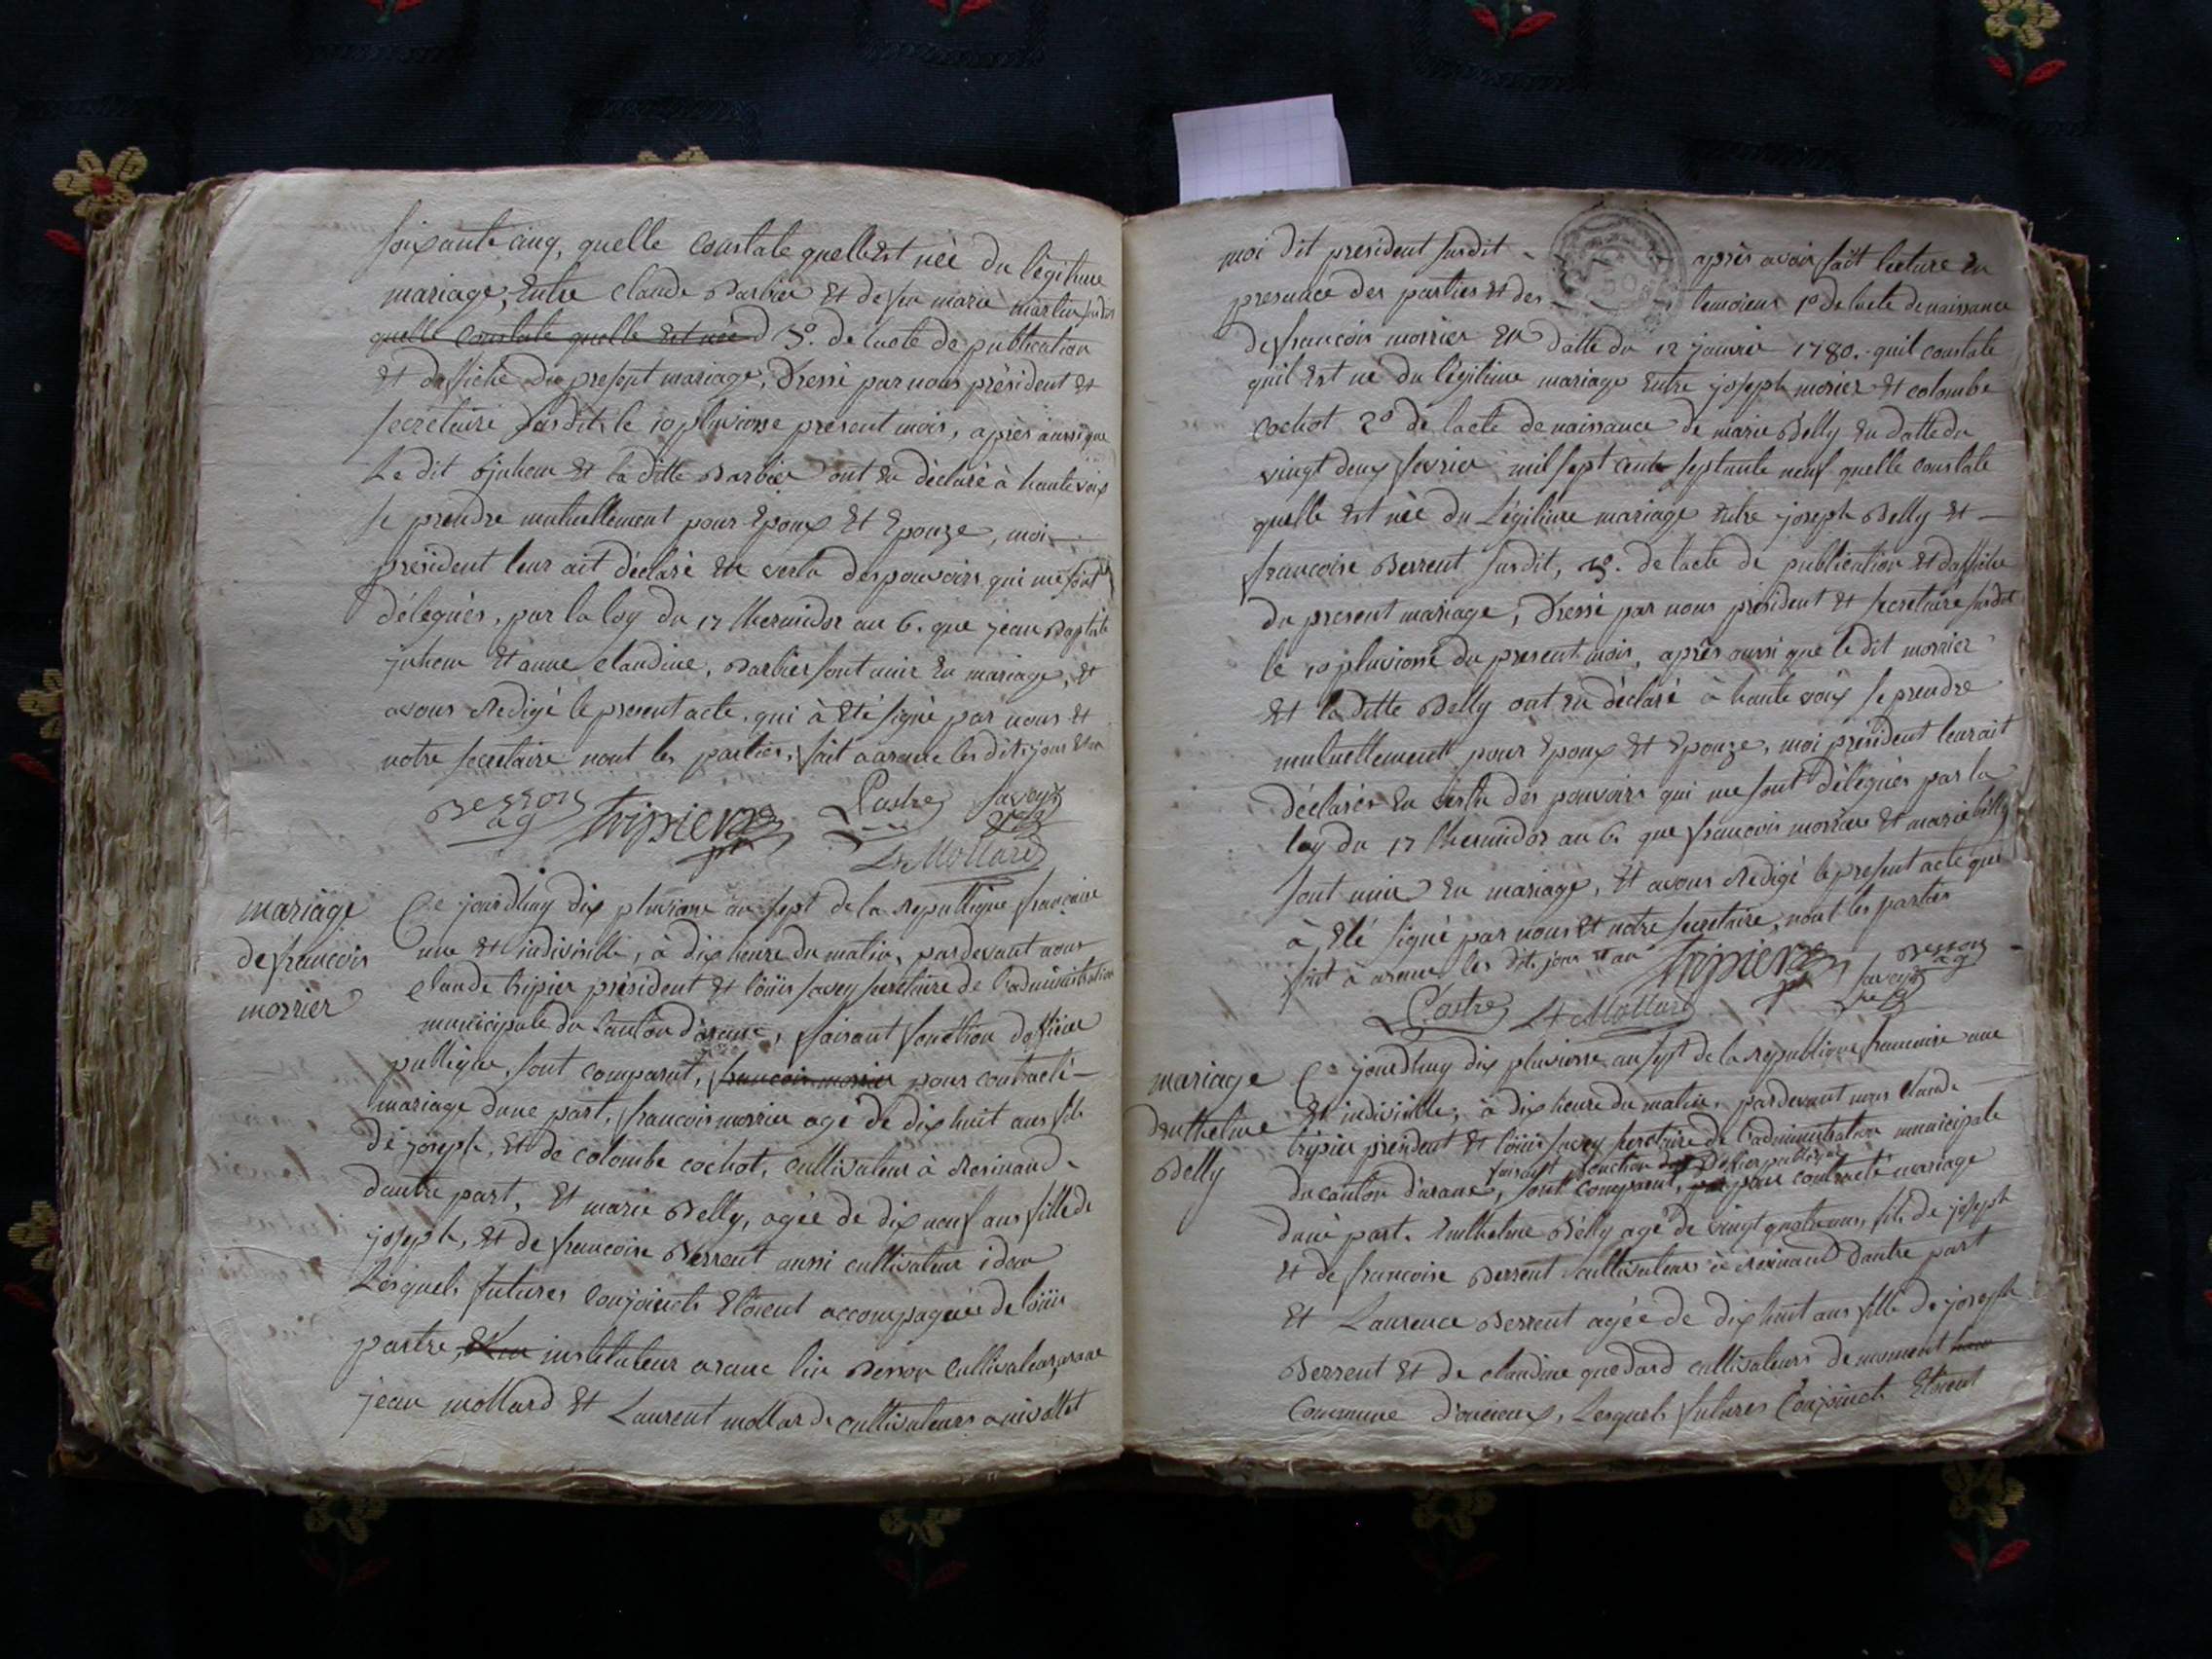 soixante cinq, quelle constate quelle Est née du légitime
mariage, Entre claude Barbier Et de feu marie martin susdits
quelle constate quelle Est née 3º. de lacte de publication
Et daffiche du present mariage, Dressé par nous président Et
secretaire susdits le 10 pluviose présent mois, après aussi que
Le dit Juhem Et la ditte Barbier ont Eu déclaré à haute voix
se prendre mutuellement pour Epoux Et Epouze, moi
président leur ait déclaré En vertu des pouvoirs qui me sont
délegués, par la loy du 17 thermidor an 6. que jean Baptiste
juhem Et anne claudine, Barbier sont unis En mariage, Et
avons Redigé le present acte, qui à Eté signé par nous Et
notre secretaire nont les parties, fait a aranc les dits jour Et an
Besson
ag tripier Pastre savey
Lt Mollard
mariage
de francois
morrier
Ce jourdhuy dix pluviose an sept de la Republique francaise
une Et indivisible, à dix heure du matin, pardevant nous
claude tripier président Et loüis savey secretaire de l'administration
municipale du Canton d'aranc, faisant fonction dofficier
publique, sont comparut, francois morrier pour contracté
mariage dune part, francois morrier agé de dix huit ans fils
de joseph, Et de colombe cochot, cultivateur à Resinand
dautre part, Et marie Belly, agée de dix neuf ans fille de
joseph, Et de francoise Berrent aussi cultivateur idem
Lesquels futures Conjoinct Etoient accompagnée de loüis
pastre, instituteur aranc lin Besson cultivateur, aranc
jean mollard Et Laurent mollard cultivateurs a nivollet
moi dit president susdit après avoir fait lecture En
presence des parties Et des temoiens 1º de lacte de naissance
de francois morrier En datte du 12 janvié 1780. quil constate
quil Est né du légitime mariage Entre joseph morier Et colombe
cochot 2º de lacte de naissance de marie Belly En datte du
vingt deux fevrier mil sept cents septante neuf quelle constate
quelle Est née du Légitime mariage Entre joseph Belly Et
francoise Berrent susdit, 3º. de lacte de publication Et daffiche
du present mariage, Dressé par nous président Et secretaire susdit
le 10 pluviose du present mois, après aussi que le dit morrier
Et la ditte Belly ont Eu déclaré à haute voix se prendre
mutuellement pour Epoux Et Epouze, moi président leur ait
déclarés En vertu des pouvoirs qui me sont délegués par la
loy du 17 thermidor an 6. que francois morriere Et marie billy
sont unis En mariage, Et avons Redigé le present acte qui
à Eté signé par nous Et notre secretaire, nont les parties
fait à aranc les dits jour Et an tripier Besson
ag
Pastre Lt Mollard savey
mariage
danthelme
Belly
Ce jourdhuy dix pluviose an sept de la republique francaise une
Et indivisible, à dix heure du matin, pardevant nous claude
tripier président Et loüis savey secretaire de l'administration municipale
faisant fonction dofficier publique
du canton d'aranc, sont comparut, pour contracté mariage
dune part. Enthelme Belly agé de vingt quatre ans, fils de joseph
Et de francoise Berrent cultivateurs à résinand dautre part
Et Laurence Berrent agée de dix huit ans fille de joseph
Berrent Et de claudine quedard cultivateurs de moment
Commune d'oncieux, Lesquels futures Conjoinct Etoient